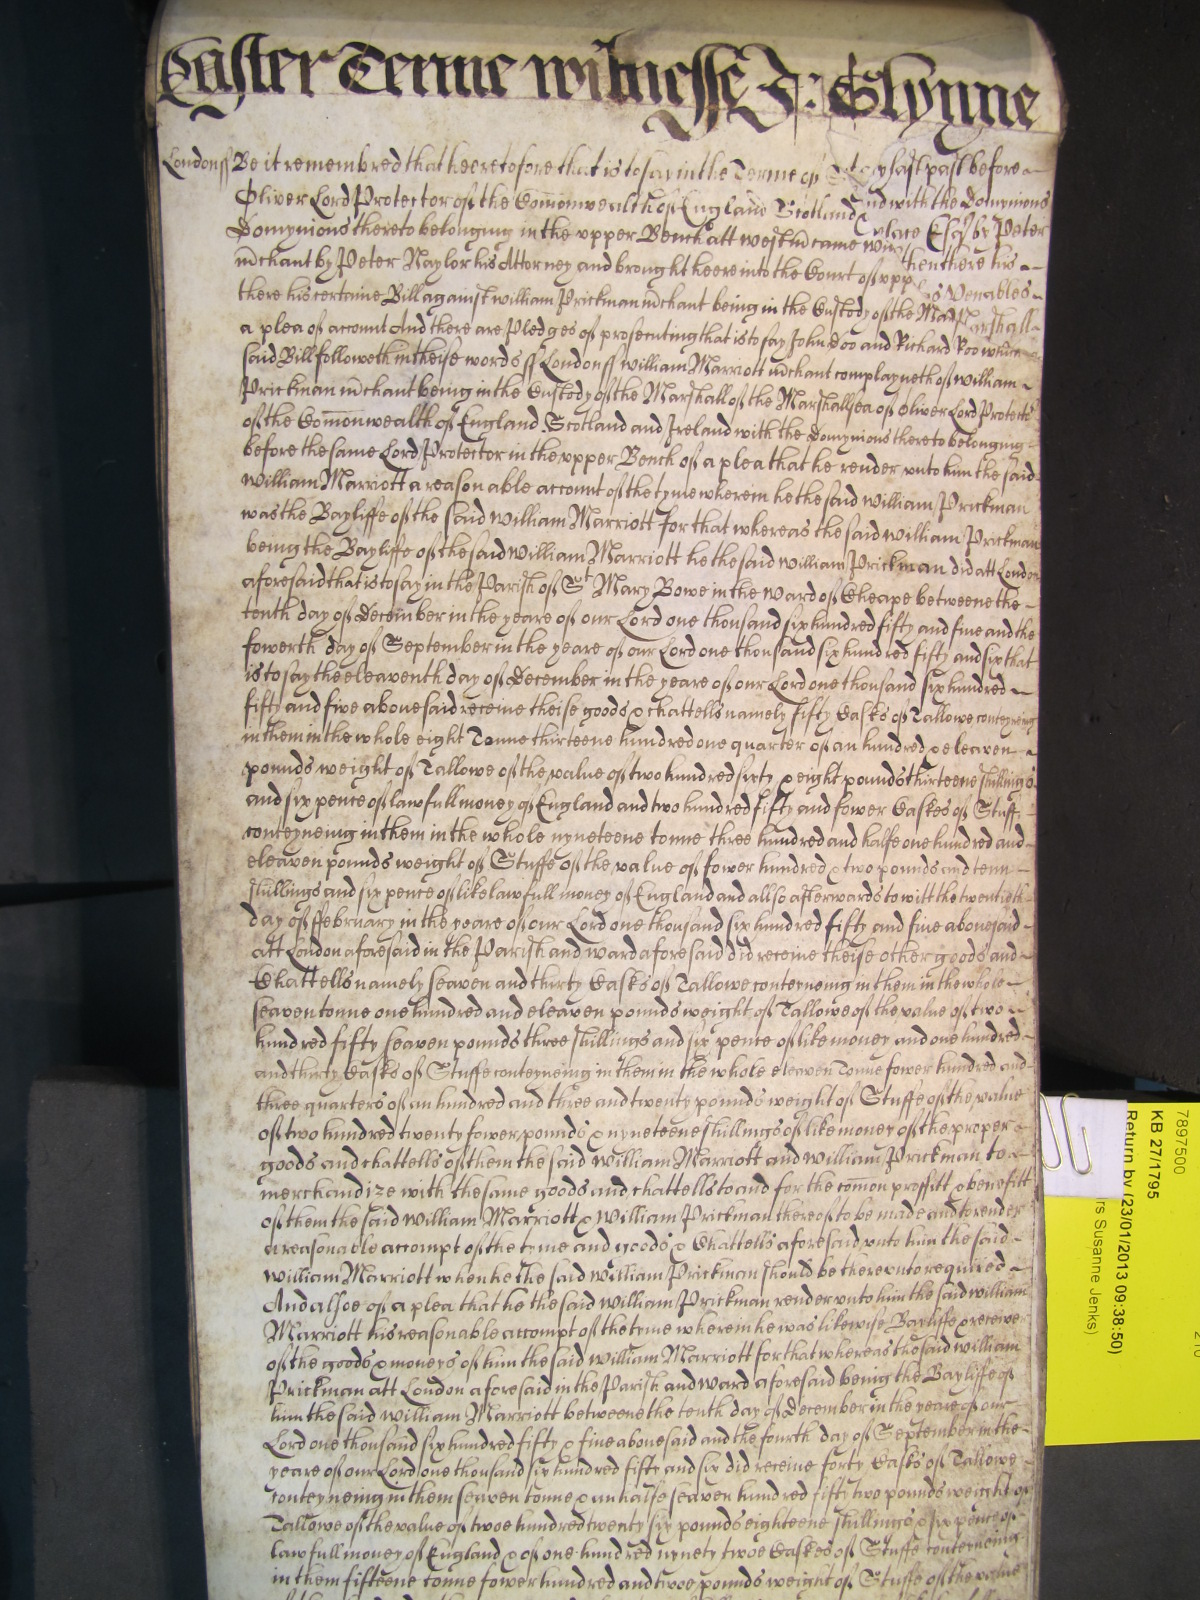 Easter Terme witnesse J: Glynne
Londonss Be it remembred that heeretofore that is to say in the Terme of last past before
Oliver Lord Protector of the Comonwealth of England Scotland and with the Domynions
Domynions thereto belonging in the vpper Bench att westm came place Esq by Peter
mchant by Peter Naylor his Attorney and brought heere into the Court of vpp then there his
there his certaine Bill against william Prickman mchant being in the Custody of the Marshall Venables
a plea of account And there are Pledges of prosecuting that is to say John Doo and Richard Roo which
said Bill followeth in theise words ss Londonss william Marriott mchant complayneth of william
Prickman mchant being in the Custody of the Marshall of the Marshallsea of Oliver Lord Protector
of the Comonwealth of England Scotland and Ireland with the Domynions thereto belonging
before the same Lord Protector in the vpper Bench of a plea that he render vnto him the said
william Marriott a reasonable account of the tyme wherein he the said william Prickman
was the Bayliffe of the said william Marriott for that whereas the said william Prickman
being the Bayliffe of the said william Marriott he the said william Prickman did att London
aforesaid that is to say in the Parish of St Mary Bowe in the ward of Cheape betweene the
tenth day of December in the yeare of our Lord one thousand six hundred fifty and five and the
fowerth day of September in the yeare of our Lord one thousand six hundred fifty and six that
is to say the eleaventh day of December in the yeare of our Lord one thousand six hundred
fifty and five abouesaid receive theise goods & chattells namely fifty Casks of Tallowe conteyneing
in them in the whole eight Tonne thirteene hundred one quarter of an hundred & eleaven
pounds weight of Tallowe of the value of two hundred sixty & eight pounds thirteene shillings
and six pence of lawfull money of England and two hundred fifty and fower Caskes of Stuff
conteyneing in them in the whole nyneteene tonne three hundred and halfe one hundred and
eleaven pounds weight of Stuffe of the value of fower hundred & two pounds and tenn
shillings and six pence of like lawfull money of England and allso afterwards to witt the twentieth
day of ffebruary in the yeare of our Lord one thousand six hundred fifty and five abouesaid
att London aforesaid in the Parish and ward aforesaid did receive theise other goods and
Chattells namely seaven and thirty Casks of Tallowe conteyneing in them in the whole
seaven tonne one hundred and eleaven pounds weight of Tallowe of the value of two
hundred fifty seaven pounds three shillings and six pence of like money and one hundred
and thirty Casks of Stuffe conteyneing in them in the whole eleaven Tonne fower hundred and
three quarters of an hundred and three and twenty pounds weight of Stuffe of the value
of two hundred twenty fower pounds & nyneteene shillings of like money of the proper
goods and chattells of them the said william Marriott and william Prickman to
merchandize with the same goods and chattells to and for the comon proffitt & benefitt
of them the said william Marriott & william Prickman thereof to be made and to render
a reasonable accompt of the tyme and goods & Chattells aforesaid vnto him the said
william Marriott when he the said william Prickman should be therevnto required
And alsoe of a plea that he the said william Prickman render vnto him the said william
Marriott his reasonable accompt of the tyme wherein he was likewise Bayliffe & receiver
of the goods & moneys of him the said william Marriott for that whereas the said william
Prickman att London aforesaid in the Parish and ward aforesaid being the Bayliffe of
him the said william Marriott betweene the tenth day of December in the yeare of our
Lord one thousand six hundred fifty & five abouesaid and the fourth day of September in the
yeare of our Lord one thousand six hundred fifty and six did receive forty Casks of Tallowe
conteyneing in them seaven tonne & an halfe seaven hundred fifty two pounds weight of
Tallowe of the value of twoe hundred twenty six pounds eighteene shillings & six pence of
lawfull money of England & of one hundred nynety twoe Caskes of Stuffe conteyneing
in them fifteene tonne fower hundred and twoe pounds weight of Stuffe of the value
7897500
KB 27/1795
Return by (23/01/2013 09:38:50)
rs Susanne Jenks)